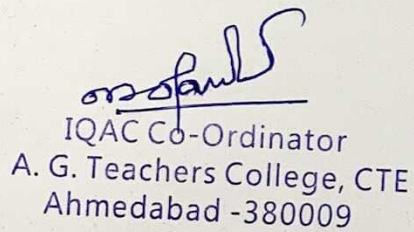 IQAC Co-Ordinator
A. G. Teachers College, CTE
Ahmedabad -380009